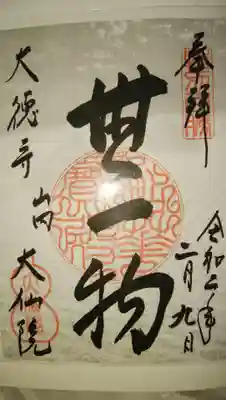 奉拜
令和二年
二月九日
無一物
大徳寺山内
大仙院